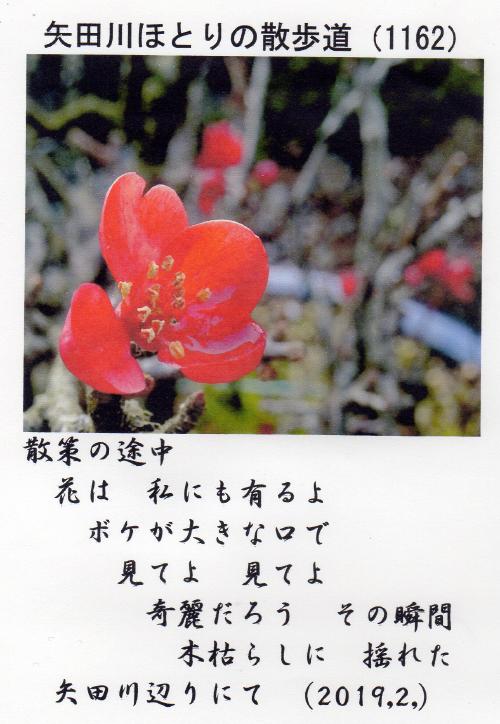 矢田川ほとりの散歩道（1162）
散策の途中
花は　私にも有るよ
ボケが大きな口で
見てよ　見てよ
奇麗だろう　その瞬間
木枯らしに　揺れた
矢田川辺りにて　（2019,2,）